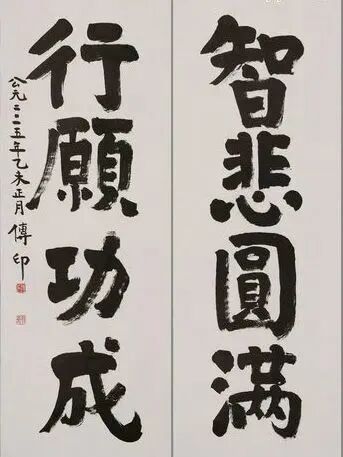 智悲圓滿
行願功成
公元二〇一五年乙未正月傳印